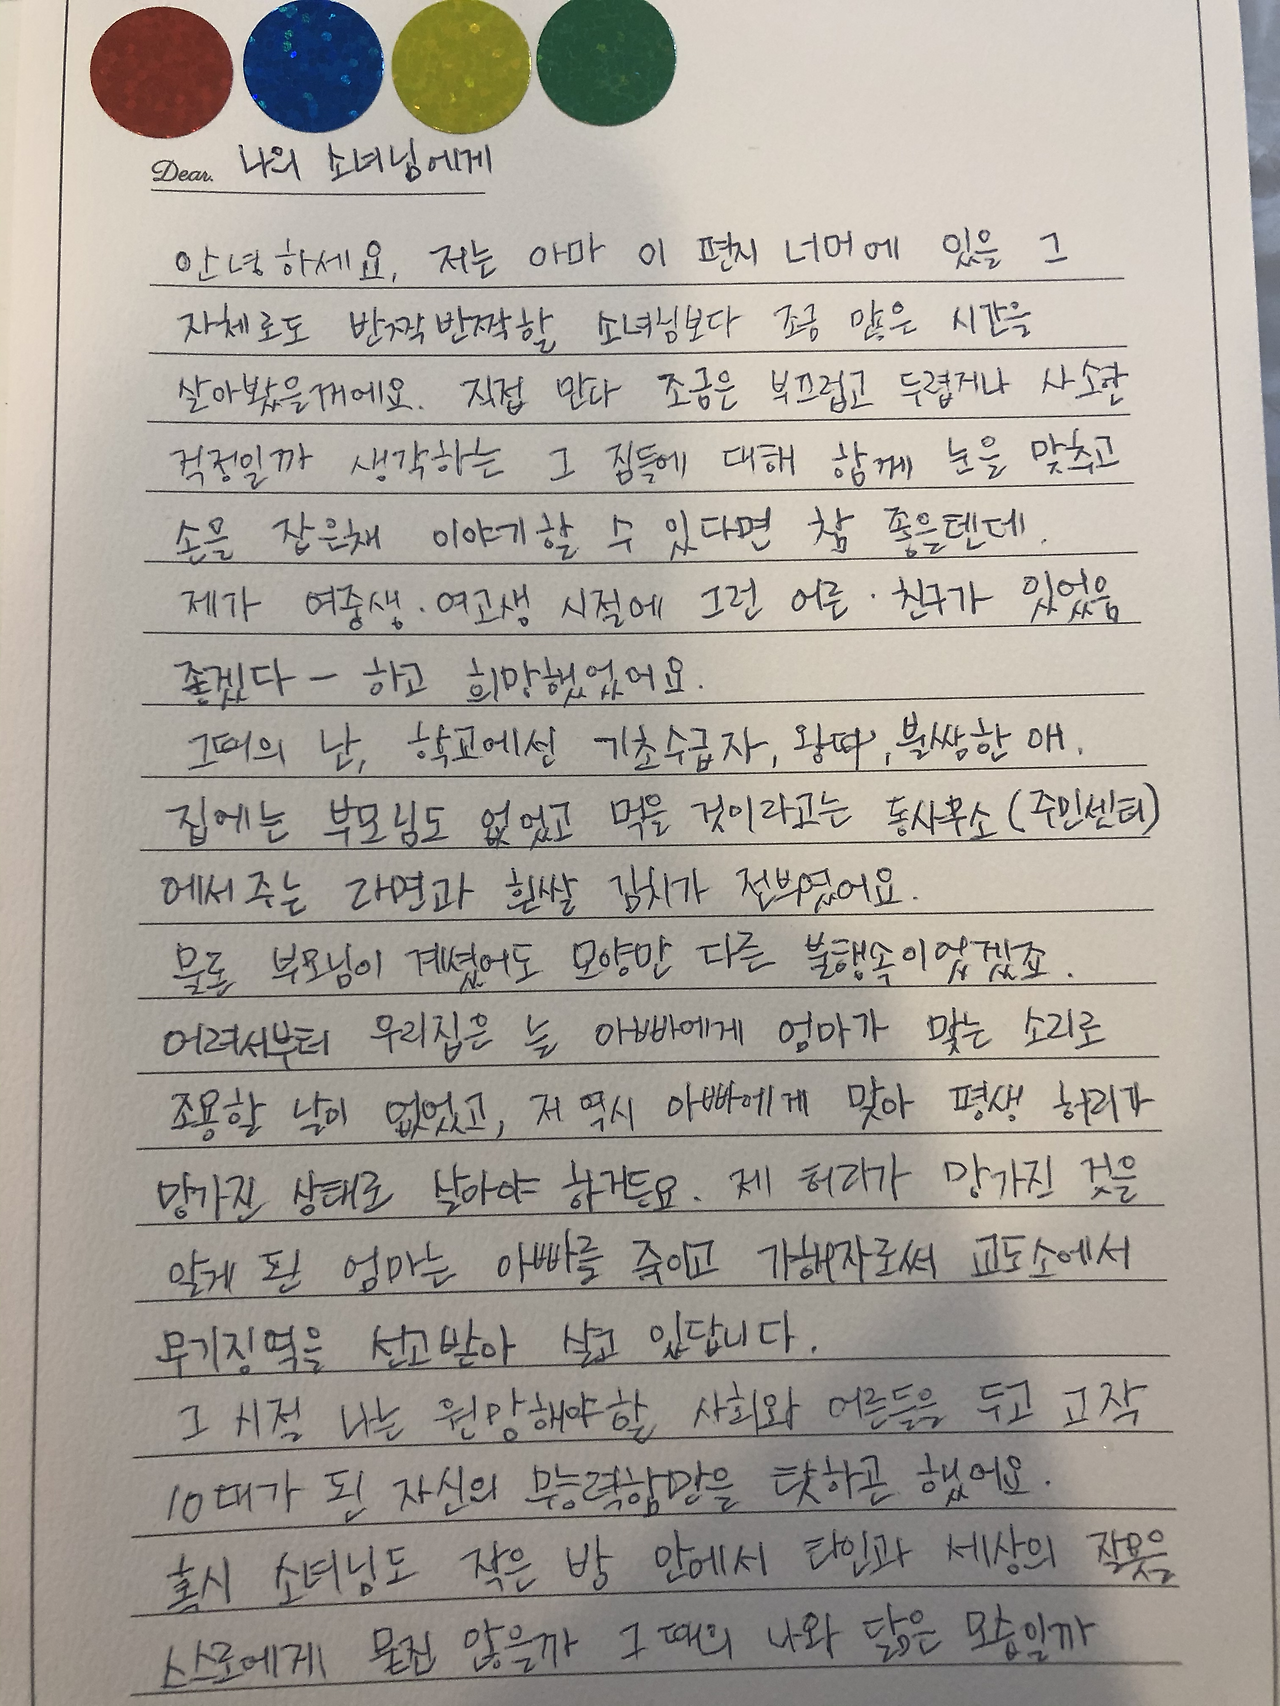 Dear. 나의 소녀님에게
안녕하세요, 저는 아마 이 편지 너머에 있을 그
자체로도 반짝반짝할 소녀님보다 조금 많은 시간을
살아봤을꺼에요. 직접 만나 조금은 부끄럽고 두렵거나 사소한
걱정일까 생각하는 그 짐들에 대해 함께 눈을 맞추고
손을 잡은채 이야기할 수 있다면 참 좋을텐데.
제가 여중생·여고생 시절에 그런 어른·친구가 있었음
좋겠다- 하고 희망했었어요.
그때의 난, 학교에선 기초수급자, 왕따, 불쌍한 애.
집에는 부모님도 없었고 먹을 것이라고는 동사무소(주민센터)
에서 주는 라면과 흰쌀 김치가 전부였어요.
물론 부모님이 계셨어도 모양만 다른 불행속이었겠죠.
어려서부터 우리집은 늘 아빠에게 엄마가 맞는 소리로
조용할 날이 없었고, 저 역시 아빠에게 맞아 평생 허리가
망가진 상태로 살아야 하거든요. 제 허리가 망가진 것을
알게 된 엄마는 아빠를 죽이고 가해자로써 교도소에서
무기징역을 선고받아 살고 있답니다.
그 시절 나는 원망해야할 사회와 어른들을 두고 고작
10대가 된 자신의 무능력함만을 탓하곤 했어요.
혹시 소녀님도 작은 방 안에서 타인과 세상의 잘못을
스스로에게 묻진 않을까 그때의 나와 닮은 모습일까